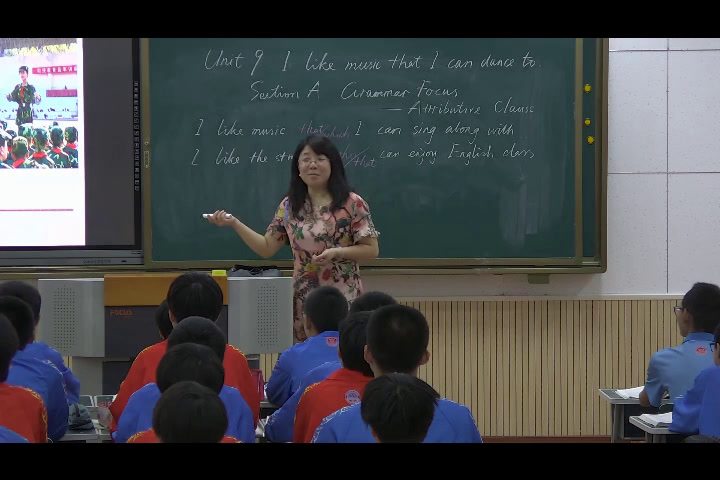 Unit 9 I like music that I can dance to.
Section A Grammar Focus
— Attributive Clause
I like music that/which I can sing along with
I like the who/that can enjoy English class